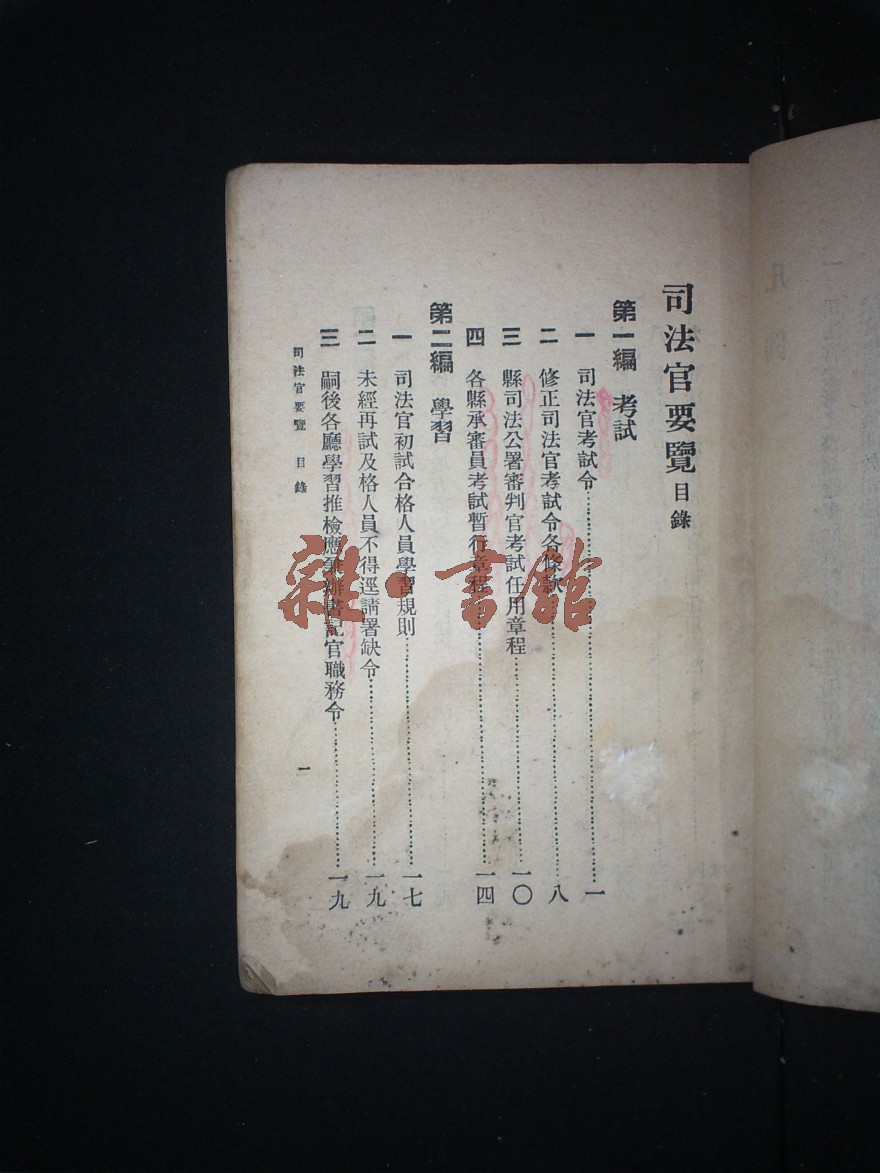 司法官要覽目錄
第一編 考試
一 司法官考試令……一
二 修正司法官考試令各條款……八
三 縣司法公署審判官考試任用章程……一〇
四 各縣承審員考試暫行章程……一四
第二編 學習
一 司法官初試合格人員學習規則……一七
二 未經再試及格人員不得逕請署缺令……一九
三 嗣後各廳學習推檢應兼辦書記官職務令……一九
司法官要覽 目錄
一
雜·書館